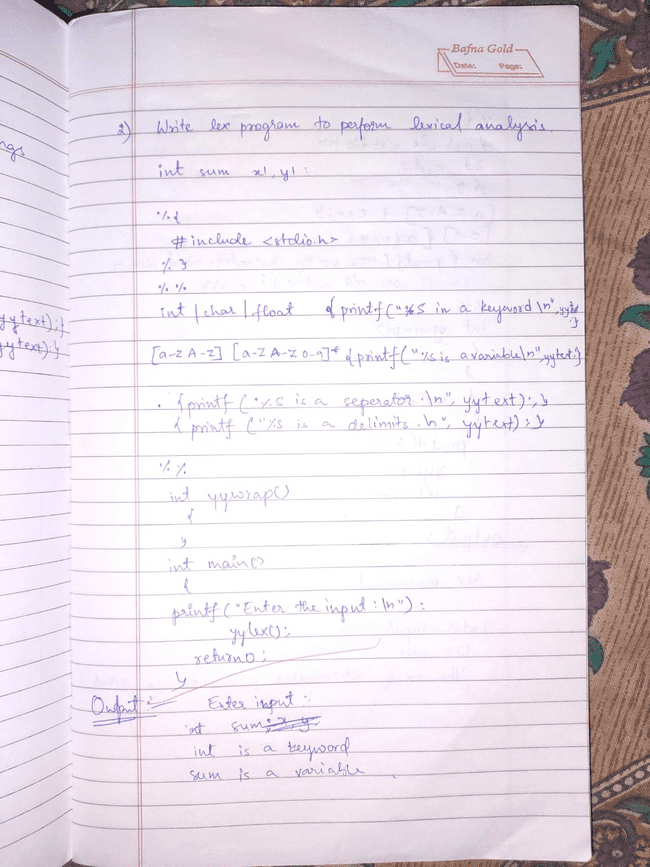 Bafna Gold
Date: Page:
ngs
2) Write lex program to perform lexical analysis.
int sum x!, y! :
%{
#include <stdio.h>
%}
%%
int | char | float { printf ("%S in a keyword \n", yy
yytext);}
yytext);}
[a-z A-Z] [a-z A-Z 0-9]* { printf ("%s is a variable \n", yytext;}
. { printf ("%s is a seperator .\n", yytext); }
{ printf ("%s is a delimits .\n", yytext) ; }
%%
int yywrap()
{
}
int main()
{
printf ("Enter the input : \n") ;
yylex();
return 0 ;
}
Output : Enter input :
int sum ; x, y
int is a keyword
sum is a variable